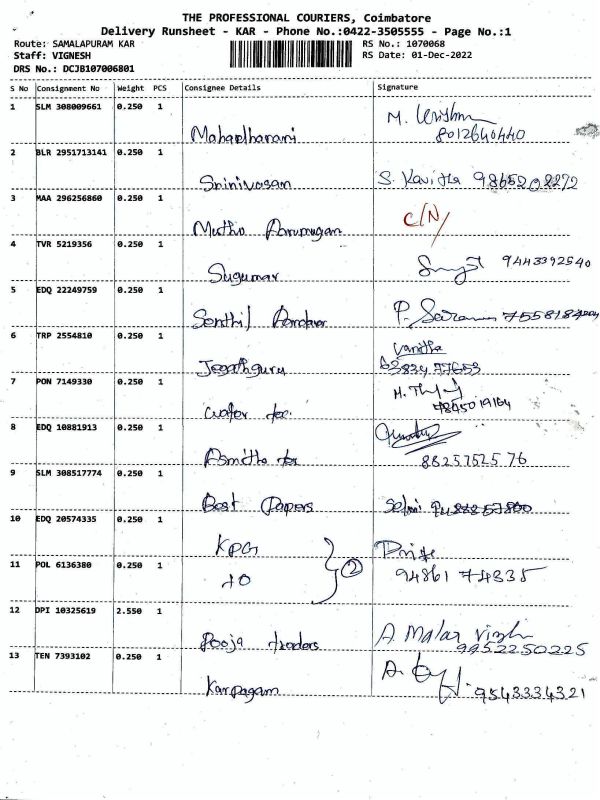 THE PROFESSIONAL COURIERS, Coimbatore
Delivery Runsheet - KAR - Phone No.:0422-3505555 - Page No.:1
Route: SAMALAPURAM KAR RS No.: 1070068
Staff: VIGNESH RS Date: 01-Dec-2022
DRS No.: DCJB107006801
S No Consignment No Weight PCS Consignee Details Signature
1 SLM 308009661 0.250 1 M.
8012640440
2 BLR 2951713141 0.250 1 Srinivasan S. Kavitha 9865202272
3 MAA 296256860 0.250 1 Muthu Arumugam C/N/
4 TVR 5219356 0.250 1 Sugumar 9443392540
5 EDQ 22249759 0.250 1 Senthil P.
6 TRP 2554810 0.250 1 Jegathguru Vanitha
7 PON 7149330 0.250 1 M.
7845019164
8 EDQ 10881913 0.250 1 Asmitha
8825752576
9 SLM 308517774 0.250 1 Best Papers Selvi
10 EDQ 20574335 0.250 1 KPG
11 POL 6136380 0.250 1 to 2 94861 74335
12 DPI 10325619 2.550 1 Pooja traders A. Malar
9952250225
13 TEN 7393102 0.250 1 Karpagam A.
9543334321